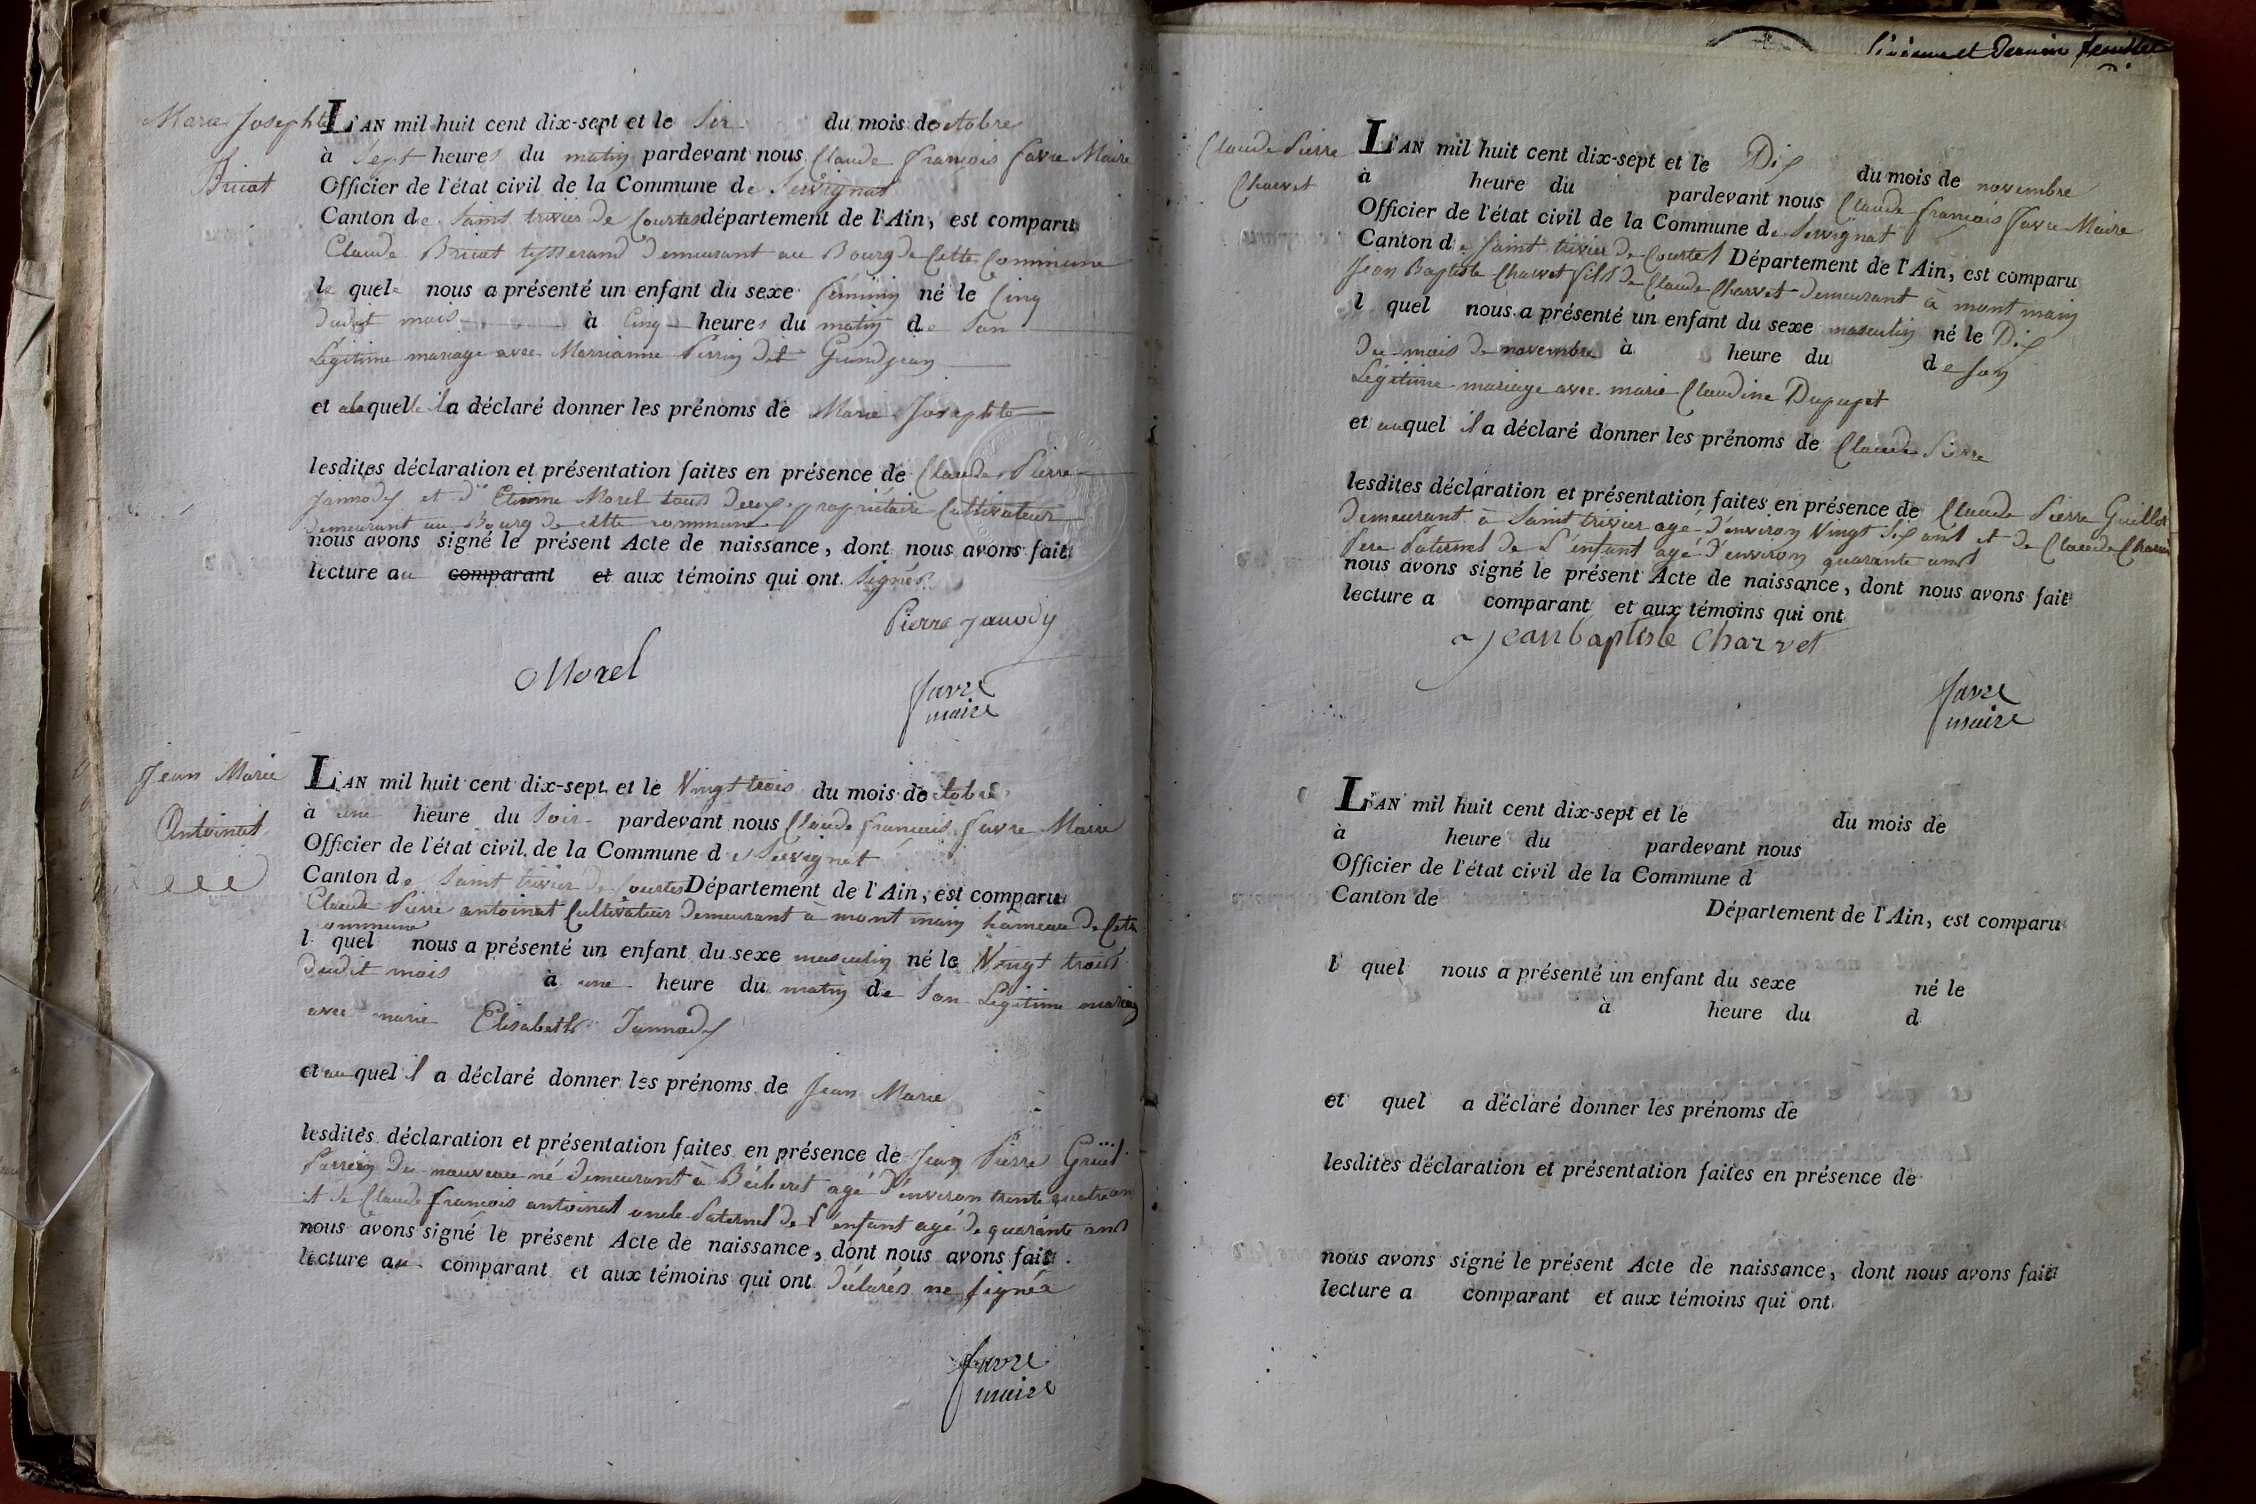 Marie Josephte
Bricat
L'AN mil huit cent dix-sept et le Six du mois de octobre
à Sept heures du matin pardevant nous Claude françois favre Maire
Officier de l'état civil de la Commune de Servignat
Canton de Saint trivier De Courtes département de l'Ain, est comparu
Claude Bricat tysserand Demeurant au Bourg de Cette Commune
le quel nous a présenté un enfant du sexe féminin né le Cinq
dudit mois à Cinq heures du matin de Son
Légitime mariage avec Marrianne Perrin dit Grandjean
et alaquelle il a déclaré donner les prénoms de Marie Josephte
lesdites déclaration et présentation faites en présence de Claude Pierre
Jannody et d' Etienne Morel tous Deux propriétaire Cultivateur
Demeurant au Bourg de cette commune
nous avons signé le présent Acte de naissance, dont nous avons fait
lecture au comparant et aux témoins qui ont Signés
Pierre Janody
Morel
favre
maire
Jean Marie
Antoinat
L'AN mil huit cent dix-sept et le Vingt trois du mois de octobre
à une heure du Soir pardevant nous Claude françois favre Maire
Officier de l'état civil de la Commune de Servignat
Canton de Saint trivier de Courtes Département de l'Ain, est comparu
Claude Pierre antoinat Cultivateur Demeurant à mont main hameau De Cette
commune
l quel nous a présenté un enfant du sexe masculin né le Vingt trois
dudit mois à une heure du matin de Son Légitime mariag
avec marie Elisabeth Jannody
et auquel il a déclaré donner les prénoms de Jean Marie
lesdites déclaration et présentation faites en présence de Jean Pierre
Parrein Du nouveau né Demeurant à agé D'environ trente quatre an
et de Claude françois antoinat oncle Paternel de L'enfant agé de quarante ans
nous avons signé le présent Acte de naissance, dont nous avons fait
lecture au comparant et aux témoins qui ont Déclarés ne signés
favre
maire
et Dernier feuillet
Claude Pierre
Charvet
L'AN mil huit cent dix-sept et le Dix du mois de novembre
à heure du pardevant nous Claude françois favre Maire
Officier de l'état civil de la Commune de Servignat
Canton de Saint trivier de Courtes Département de l'Ain, est comparu
Jean Baptiste Charvet fils De Claude Charvet Demeurant à mont main
l quel nous a présenté un enfant du sexe masculin né le Dix
Du mois De novembre à heure du de son
Légitime mariage avec marie Claudine Dupupet
et auquel il a déclaré donner les prénoms de Claude Pierre
lesdites déclaration et présentation faites en présence de Claude Pierre Guillot
Demeurant à Saint trivier agé d'environ Vingt Six ans et de Claude Charvet
Pere Paternel de L'enfant agé d'environ quarante ans
nous avons signé le présent Acte de naissance, dont nous avons fait
lecture a comparant et aux témoins qui ont
Jean baptiste Charvet
favre
maire
L'AN mil huit cent dix-sept et le du mois de
à heure du pardevant nous
Officier de l'état civil de la Commune d
Canton de Département de l'Ain, est comparu
l quel nous a présenté un enfant du sexe né le
à heure du d
et quel a déclaré donner les prénoms de
lesdites déclaration et présentation faites en présence de
nous avons signé le présent Acte de naissance, dont nous avons fait
lecture a comparant et aux témoins qui ont